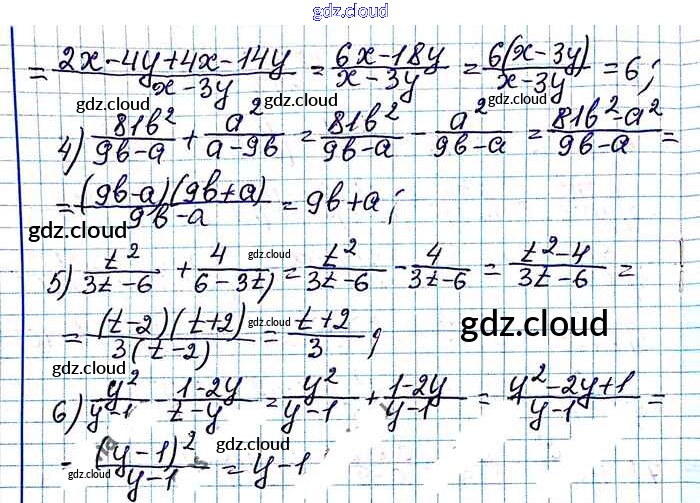 gdz.cloud
= (2x-4y+4x-14y)/(x-3y) = (6x-18y)/(x-3y) = 6(x-3y)/(x-3y) = 6;
gdz.cloud gdz.cloud gdz.cloud
4) 81b²/(9b-a) + a²/(a-9b) = 81b²/(9b-a) - a²/(9b-a) = (81b²-a²)/(9b-a) =
= (9b-a)(9b+a)/(9b-a) = 9b+a;
gdz.cloud gdz.cloud gdz.cloud
5) t²/(3t-6) + 4/(6-3t) = t²/(3t-6) - 4/(3t-6) = (t²-4)/(3t-6) =
gdz.cloud gdz.cloud
= (t-2)(t+2)/3(t-2) = (t+2)/3;
gdz.cloud gdz.cloud
6) y²/(y-1) (1-2y)/(t-y) = y²/(y-1) + (1-2y)/(y-1) = (y²-2y+1)/(y-1) =
gdz.cloud gdz.cloud
- (y-1)²/(y-1) = y-1
gdz.cloud gdz.cloud